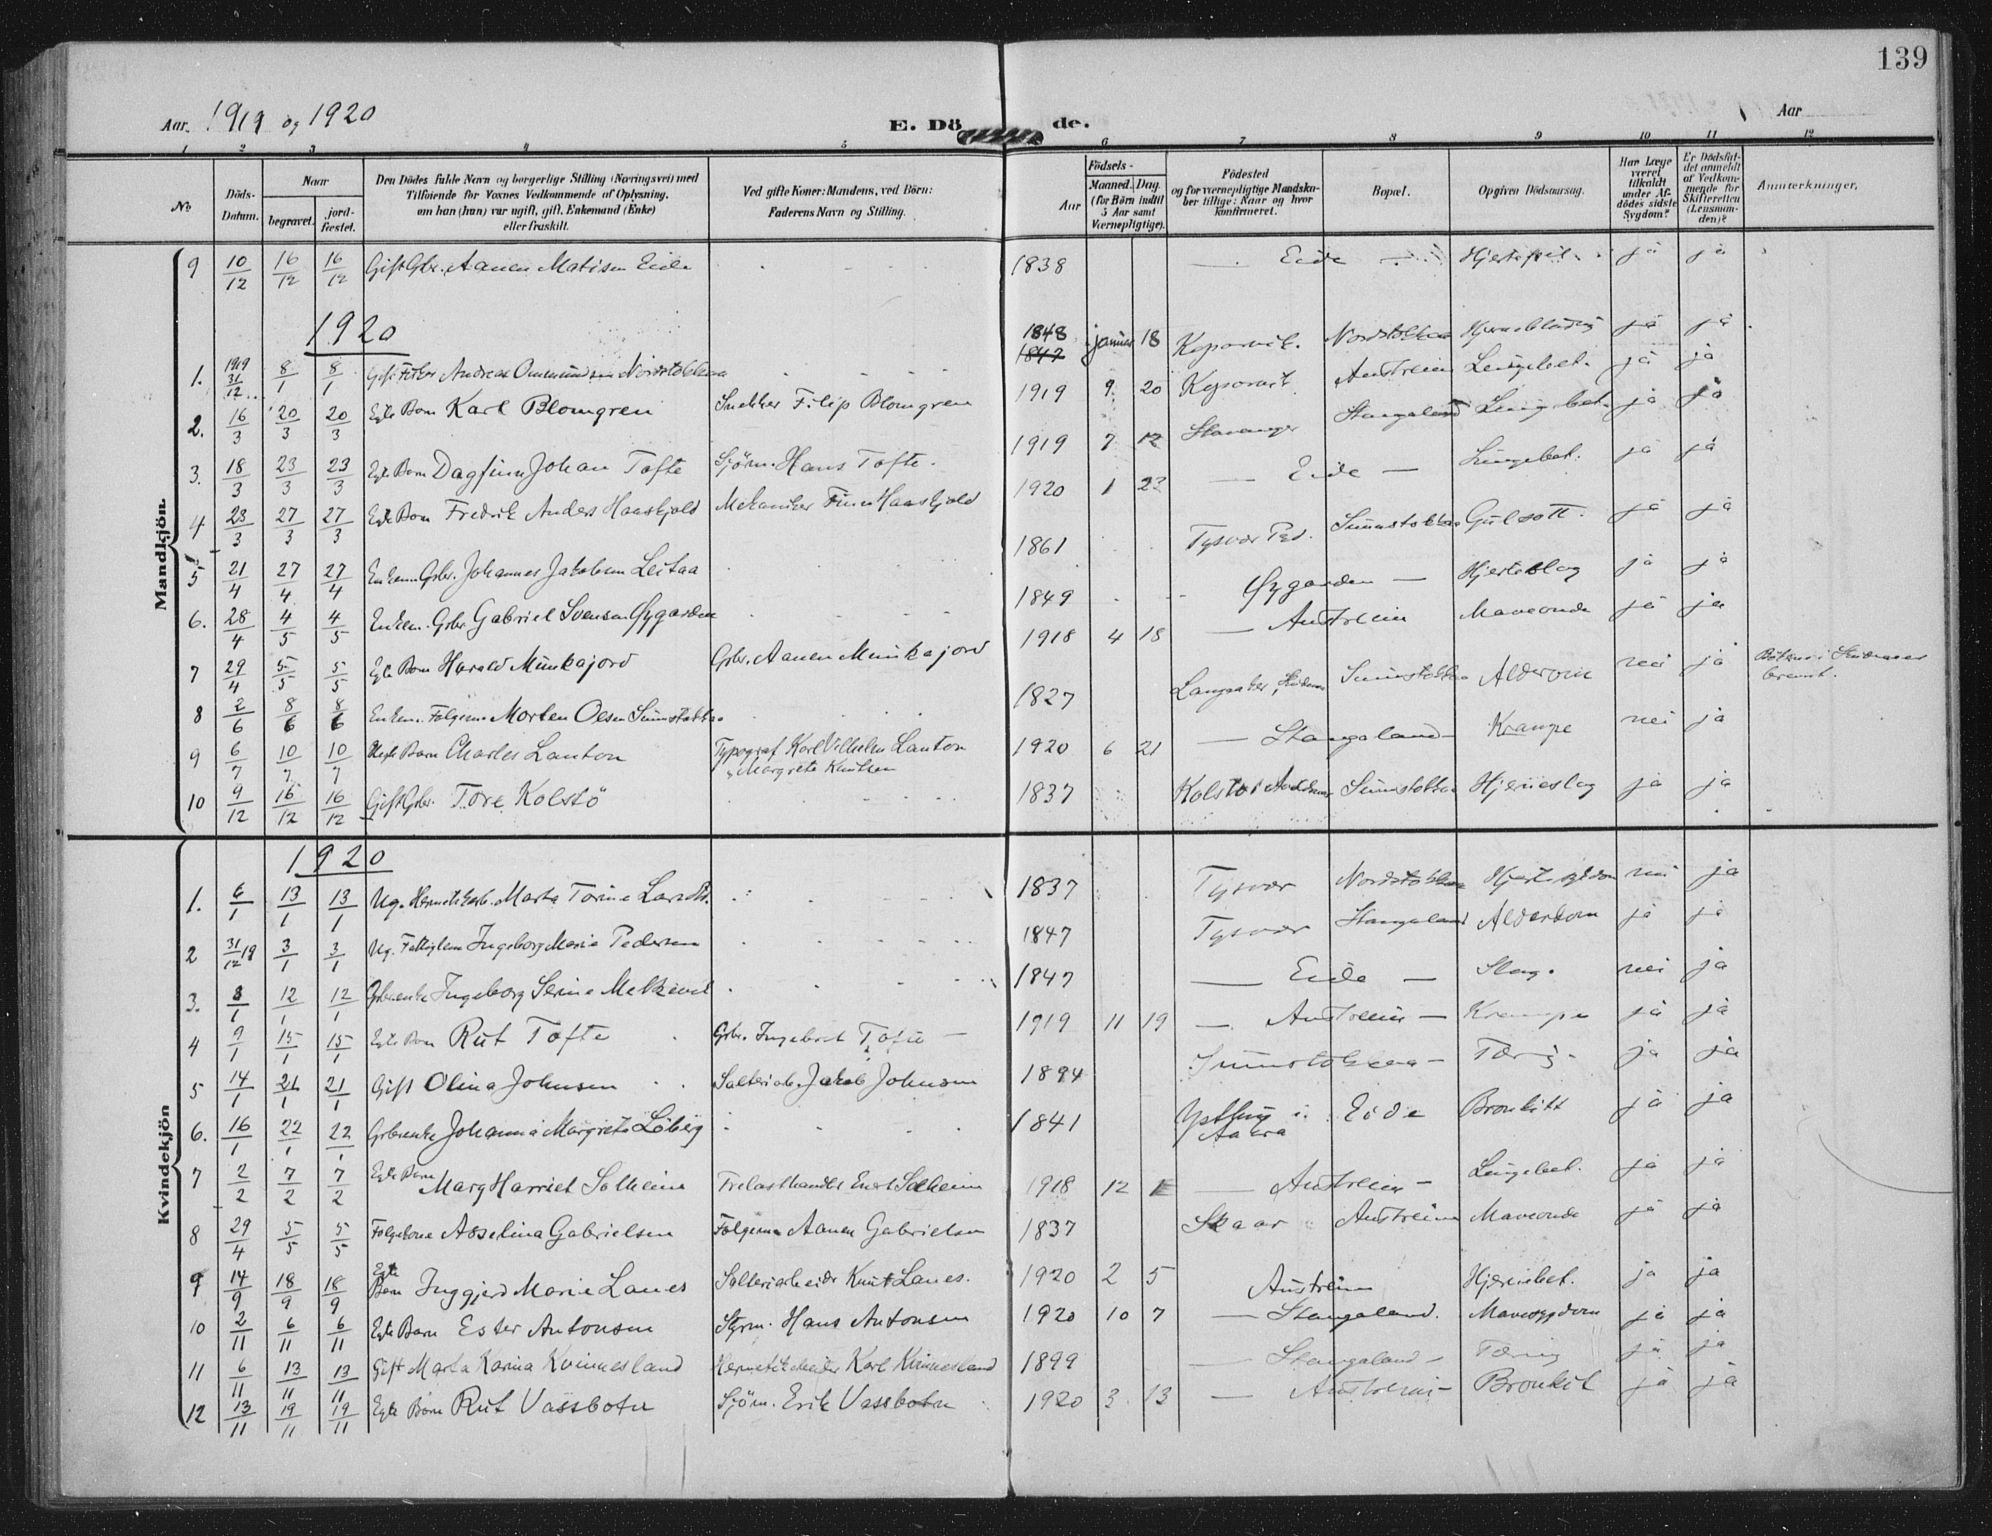 139
Aar. 1919 og 1920 E. Döde. Aar
1 2 3 4 5 6 7 8 9 10 11 12
No Döds-Datum. Naar begravet. jordfæstet. Den Dödes fulde Navn og borgerlige Stilling (Næringsvei) med Tilföiende for Voxnes Vedkommende af Oplysning, om han (hun) var ugift, gift, Enkemand (Enke) eller fraskilt. Ved gifte Koner: Mandens, ved Börn: Faderens Navn og Stilling. Födsels- Aar Maaned. Dag. (for Börn indtil 5 Aar samt Værnepligtige). Födested og for værnepligtige Mandskaber tillige: Naar og hvor konfirmeret. Bopæl. Opgiven Dödsaarsag. Har Læge været tilkaldt under Afdödes sidste Sygdom? Er Dödsfaldet anmeldt af Vedkommende for Skifteretten (Lensmanden)? Anmærkninger.
Mandkjön.
9 10/12 16/12 16/12 Gift Gbr. Aanen Matisen Eide 1838 — Eide — ja ja
1920
1. 1919 31/12 8/1 8/1 Gift Andreas Ommundsen Nordstokkaa 1848 1847 januar 18 Kopervik. Nordstokkaa ja ja
2. 16/3 20/3 20/3 Egte Barn Karl Blomgren Snekker Filip Blomgren 1919 9 20 Kopervik Austreim Lungebet. ja ja
3. 18/3 23/3 23/3 Egte Barn Dagfinn Johan Tofte Sjöm. Hans Tofte. 1919 7 12 Stavanger Stangeland Lungebet. ja ja
4 23/3 27/3 27/3 Egte Barn Fredrik Anders Haaskjold Mekaniker Finn Haaskjold 1920 1 23 — Eide — Lungebet. ja ja
5 21/4 27/4 27/4 Enkem. Gbr. Johannes Jakobsen Leitaa 1861 Tysvær Sunnstokkaa Gulsott. ja ja
6. 28/4 4/5 4/5 Enkem. Gbr. Gabriel Svensen Øygarden 1849 Øygarden — Hjerteslag ja ja
7 29/4 5/5 5/5 Egte Barn Harald Munkajord Gbr. Aanen Munkajord 1918 4 18 — Austreim Maveonde ja ja
8 2/6 8/6 8/6 Enkem. Folgem. Morten Olsen Sunnstokkaa 1827 Sunnstokkaa Alderdom nei ja
9 6/7 10/7 10/7 Barn Charles Lanton Typograf Karl Vilhelm Lanton
Margrete Knutsen 1920 6 21 — Stangeland — Krampe nei ja
10 9/12 16/12 16/12 Gift Gbr. Tore Kolstö 1837 Kolstö Sunnstokkaa Hjerneslag ja ja
Kvindekjön
1920
1. 6/1 13/1 13/1 Ug. Marta Torine 1837 Tysvær Nordstokkaa nei ja
2 31/12 19 3/1 3/1 Ug. Fattiglem Ingeborg Maria Pedersen 1847 Tysvær Stangeland Alderdom ja ja
3. 8/1 12/1 12/1 Gbr.enke Ingeborg Serine Melkevik 1847 — Eide — Slag. nei ja
4 9/1 15/1 15/1 Egte Barn Rut Tofte Gbr. Ingebret Tofte — 1919 11 19 — Austreim — Krampe ja ja
5 14/1 21/1 21/1 Gift Olina Johnsen Salteriarb. Jakob Johnsen 1894 Sunnstokkaa — Tæring. ja ja
6. 16/1 22/1 22/1 Gbr.enke Johanna Margrete Löberg 1841 Aakra Eide Bronkitt ja ja
7 2/2 7/2 7/2 Egte Barn Mary Harriet Solheim Trelasthandl. Solheim 1918 12 1 — Austreim — Lungebet. ja ja
8 29/4 5/5 5/5 Folgekone Asselina Gabrielsen Folgem. Aanen Gabrielsen 1837 Skaar Austreim Maveonde ja ja
9 14/9 18/9 18/9 Egte Barn Inggjerd Marie Lanes Salteriarbeider Knut Lanes. 1920 2 5 Austreim Hjernebet. ja ja
10 2/11 6/11 6/11 Egte Barn Ester Antonsen Styrm. Hans Antonsen 1920 10 7 — Stangeland. Mavesygdom ja ja
11 6/11 13/11 13/11 Gift Marta Karina Kvinnesland Hermetikarbeider Karl Kvinnesland 1899 — Stangeland — Tæring ja ja
12 13/11 19/11 19/11 Egte Barn Rut Vassbotn Sjöm. Erik Vassbotn 1920 3 13 — Austreim — Bronkit ja ja